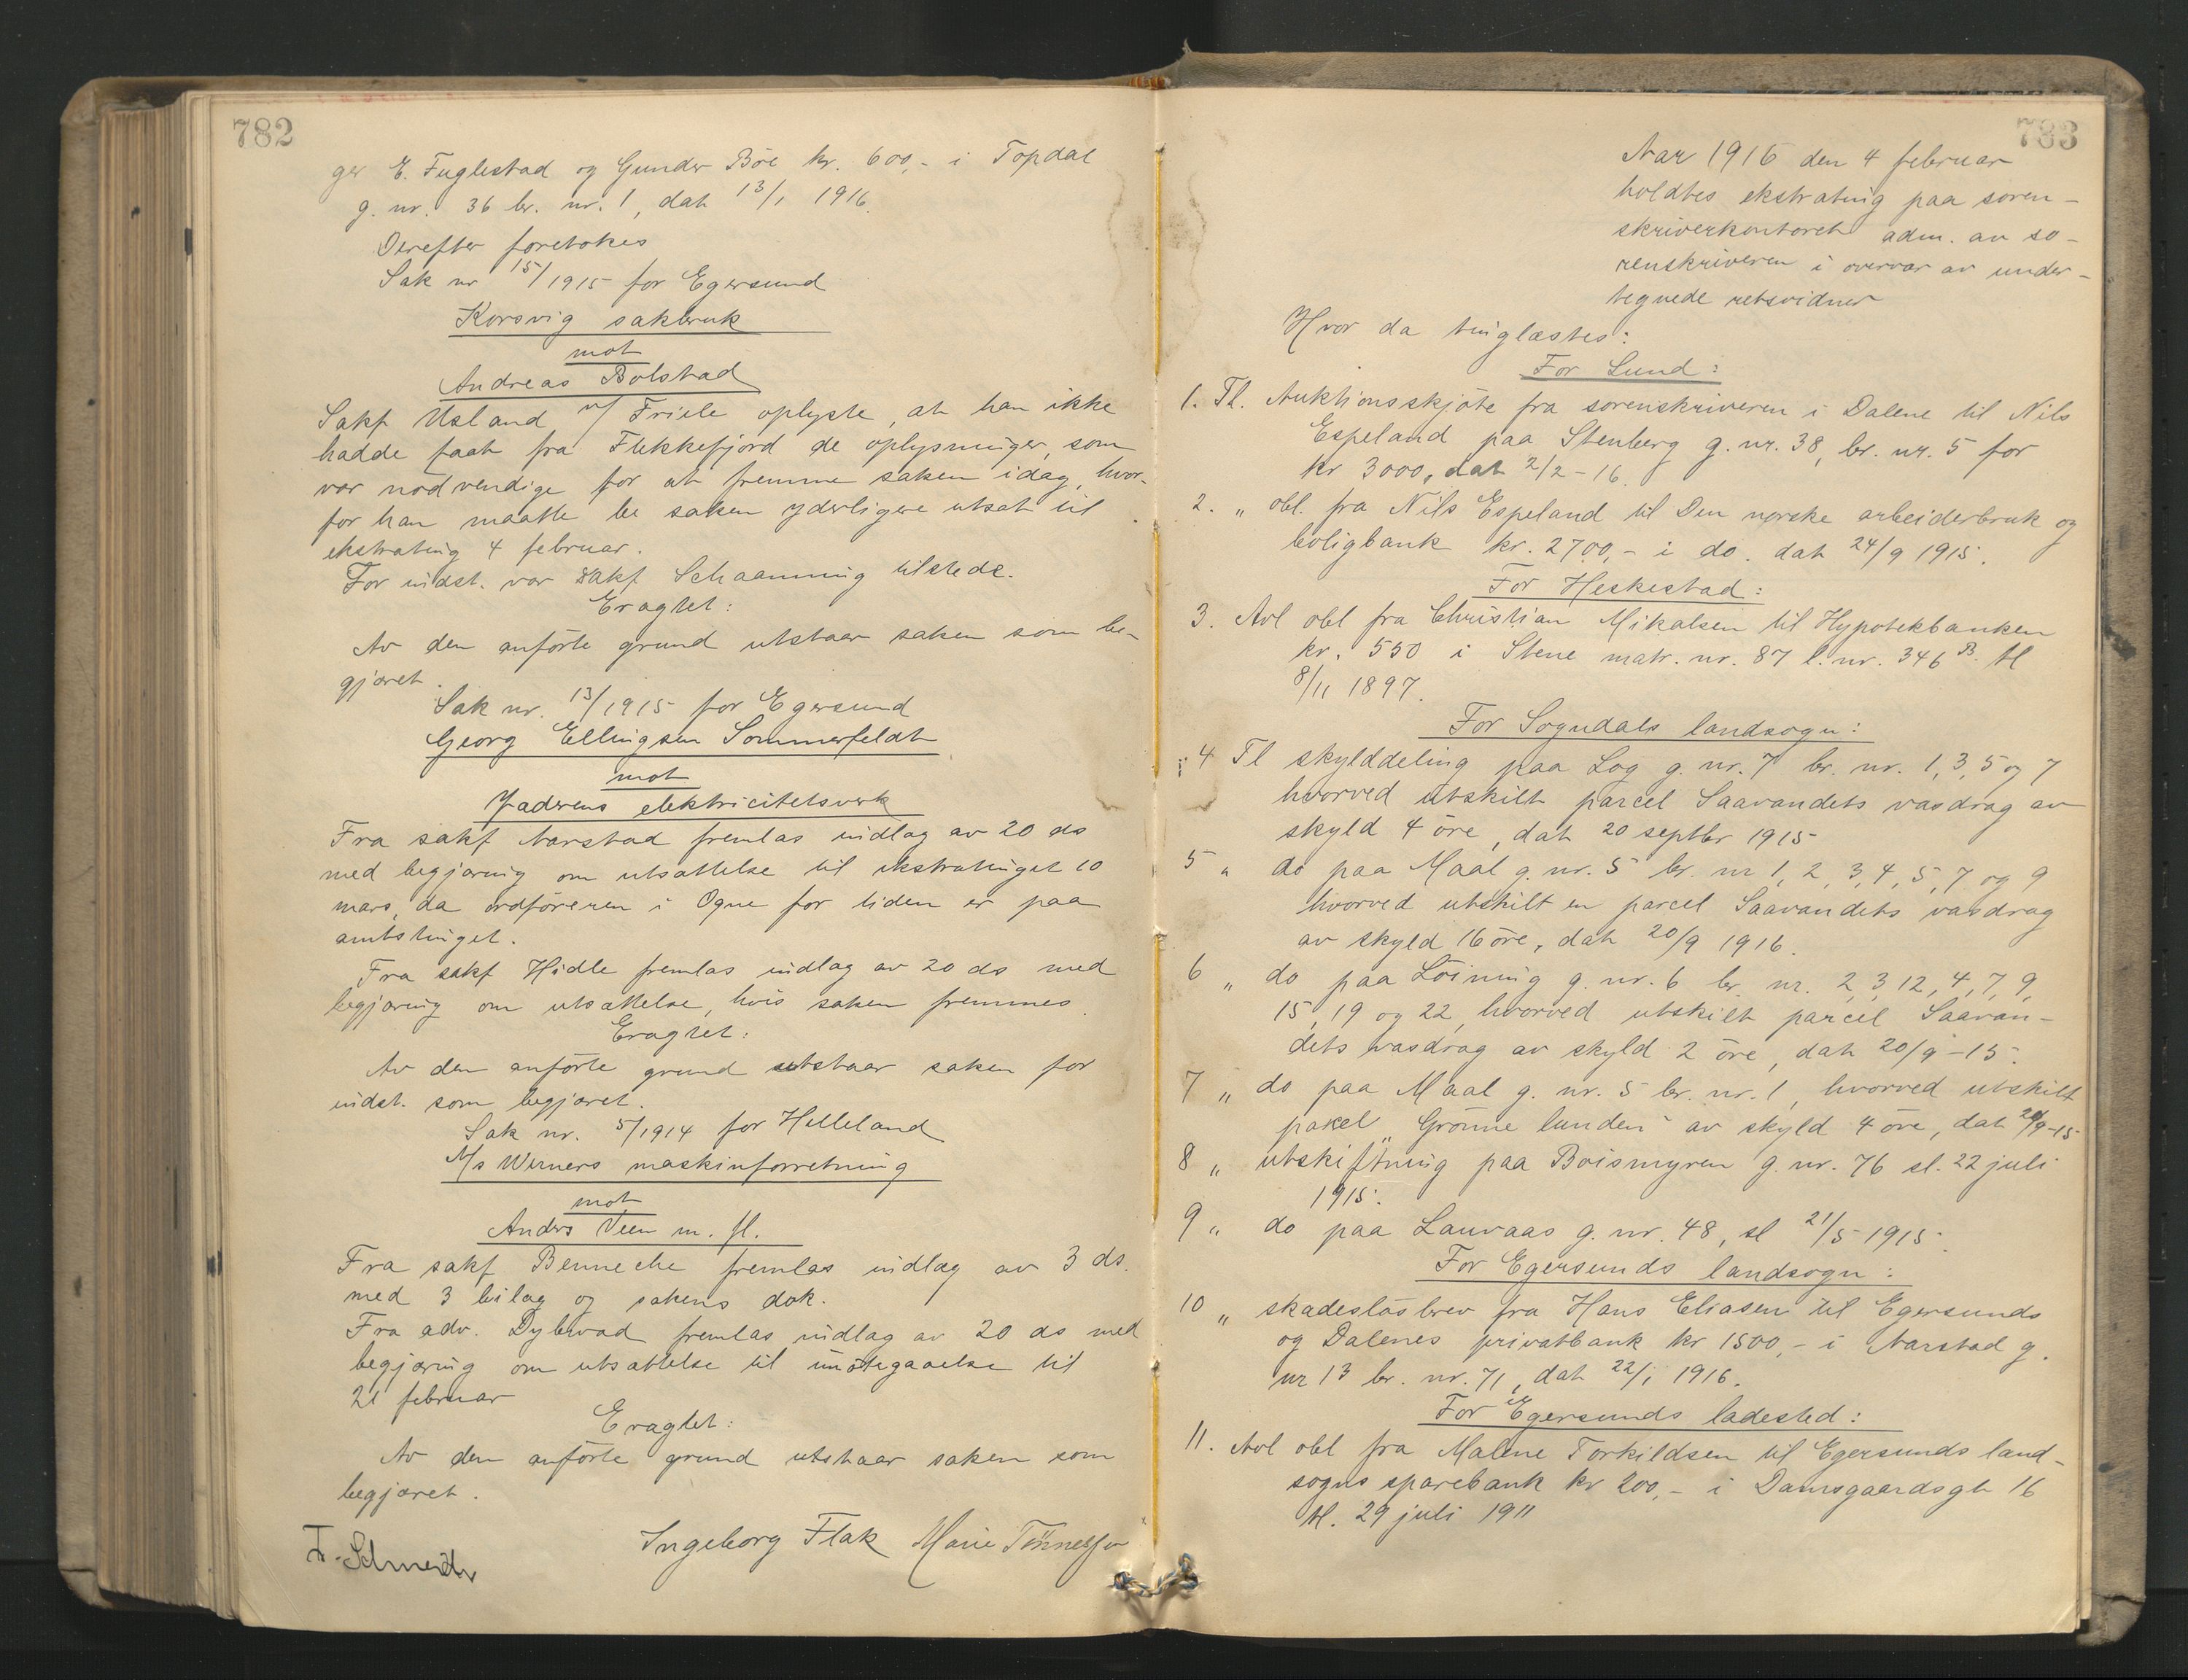 782
ger E. Fuglestad og Gunder Böe kr. 600,- i Topdal
g. nr. 36 br. nr. 1, dat 13/1 1916.
Derefter foretokes
Sak nr 15/1915 for Egersund
Korsvig sakbruk
mot
Andreas Bolstad
Sakf Usland v/ Friele oplyste, at han ikke
hadde faat fra Flekkefjord de oplysninger, som
var nödvendige for at fremme saken idag, hvor-
for han maatte be saken yderligere utsat til
ekstrating 4 februar.
For indst. var sakf Schaanning tilstede.
Eragtet:
Av den anförte grund utstaar saken som be-
gjæret.
Sak nr. 13/1915 for Egersund
Georg Ellingsen Sommerfeldt
mot
Jæderens elektricitetsverk
Fra sakf Aarstad fremlas indlæg av 20 ds
med begjæring om utsættelse til ekstratinget 10
mars, da ordföreren i Ogne for tiden er paa
amtstinget.
Fra sakf Hidle fremlas indlæg av 20 ds med
begjæring om utsættelse, hvis saken fremmes.
Eragtet:
Av den anförte grund utstaar saken for
indst. som begjæret.
Sak nr. 5/1914 for Helleland
A/s Werners maskinforretning
mot
Anders Veen m. fl.
Fra sakf Benneche fremlas indlæg av 3 ds.
med 3 bilag og sakens dok.
Fra adv. Dybwad fremlas indlæg av 20 ds med
begjæring om utsættelse til imötegaaelse til
21 februar
Eragtet:
Av den anförte grund utstaar saken som
begjæret.
Ingeborg Flak Marie Tönnessen
783
Aar 1916 den 4 februar
holdtes ekstrating paa soren-
skriverkontoret adm. av so-
renskriveren i overvær av under-
tegnede retsvidner
Hvor da tinglæstes:
For Lund:
1. Tl. Auktionsskjöte fra sorenskriveren i Dalene til Nils
Espeland paa Stenberg g. nr. 38, br. nr. 5 for
kr 3000, dat 2/2-16.
2. " obl. fra Nils Espeland til Den norske arbeiderbruk og
boligbank kr. 2700,- i do. dat 24/9 1915.
For Heskestad:
3. Avl obl fra Christian Mikalsen til Hypotekbanken
kr. 550 i Stene matr. nr. 87 l. nr. 346 B. tl
8/11 1897.
For Sogndals landsogn:
4 Tl skylddeling paa Log g. nr. 7 br. nr. 1, 3, 5 og 7
hvorved utskilt parcel Saavandets vasdrag av
skyld 4 öre, dat 20 septbr 1915
5 " do paa Maal g. nr. 5 br. nr 1, 2, 3, 4, 5, 7 og 9
hvorved utskilt en parcel Saavandets vasdrag
av skyld 16 öre, dat 20/9 1916.
6 " do paa Löining g. nr. 6 br. nr. 2, 3 12, 4, 7, 9,
15, 19 og 22, hvorved utskilt parcel Saavan-
dets vasdrag av skyld 2 öre, dat 20/9-15.
7 " do paa Maal g. nr. 5 br. nr. 1, hvorved utskilt
pakel „Grönne lunden" av skyld 4 öre, dat 20/9-15
8 " utskiftning paa Boismyren g. nr. 76 sl. 22 juli
1915.
9 " do paa Lauvaas g. nr. 48, sl 21/5 1915.
For Egersunds landsogn:
10 " skadeslösbrev fra Hans Eliasen til Egersunds
og Dalenes privatbank kr 1500,- i Aarstad g.
nr 13 br. nr. 71, dat 22/1 1916.
For Egersunds ladested:
11. Avl obl fra Malene Torkildsen til Egersunds land-
sogns sparebank kr 200,- i Damsgaardsgt 16
tl. 29 juli 1911